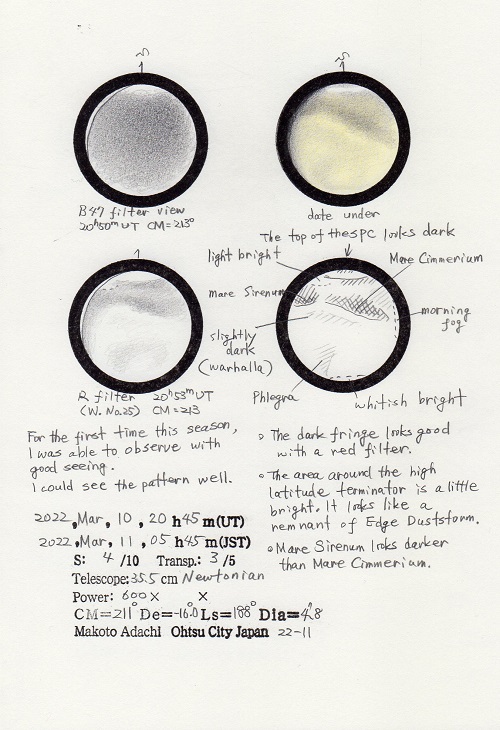 S
S
B47 filter view
20h50mUT CM=213°
date under
The top of the SPC looks dark
light bright
Mare Cimmerium
Mare Sirenum
morning fog
slightly
dark
(warhalla)
Phlegra
whitish bright
R filter 20h53mUT
(W.No.25) CM=213
For the first time this season,
I was able to observe with
good seeing.
I could see the pattern well.
2022,Mar, 10 , 20 h45m(UT)
2022,Mar, 11 , 05 h45m(JST)
S: 4 /10 Transp.: 3 /5
Telescope:35.5 cm Newtonian
Power: 600× ×
CM=211° De=-16.0 Ls=188° Dia=4.8
Makoto Adachi Ohtsu City Japan 22-11
◦ The dark fringe looks good
with a red filter.
◦ The area around the high
latitude terminator is a little
bright. It looks like a
remnant of Edge Duststorm.
◦ Mare Sirenum looks darker
than Mare Cimmerium.